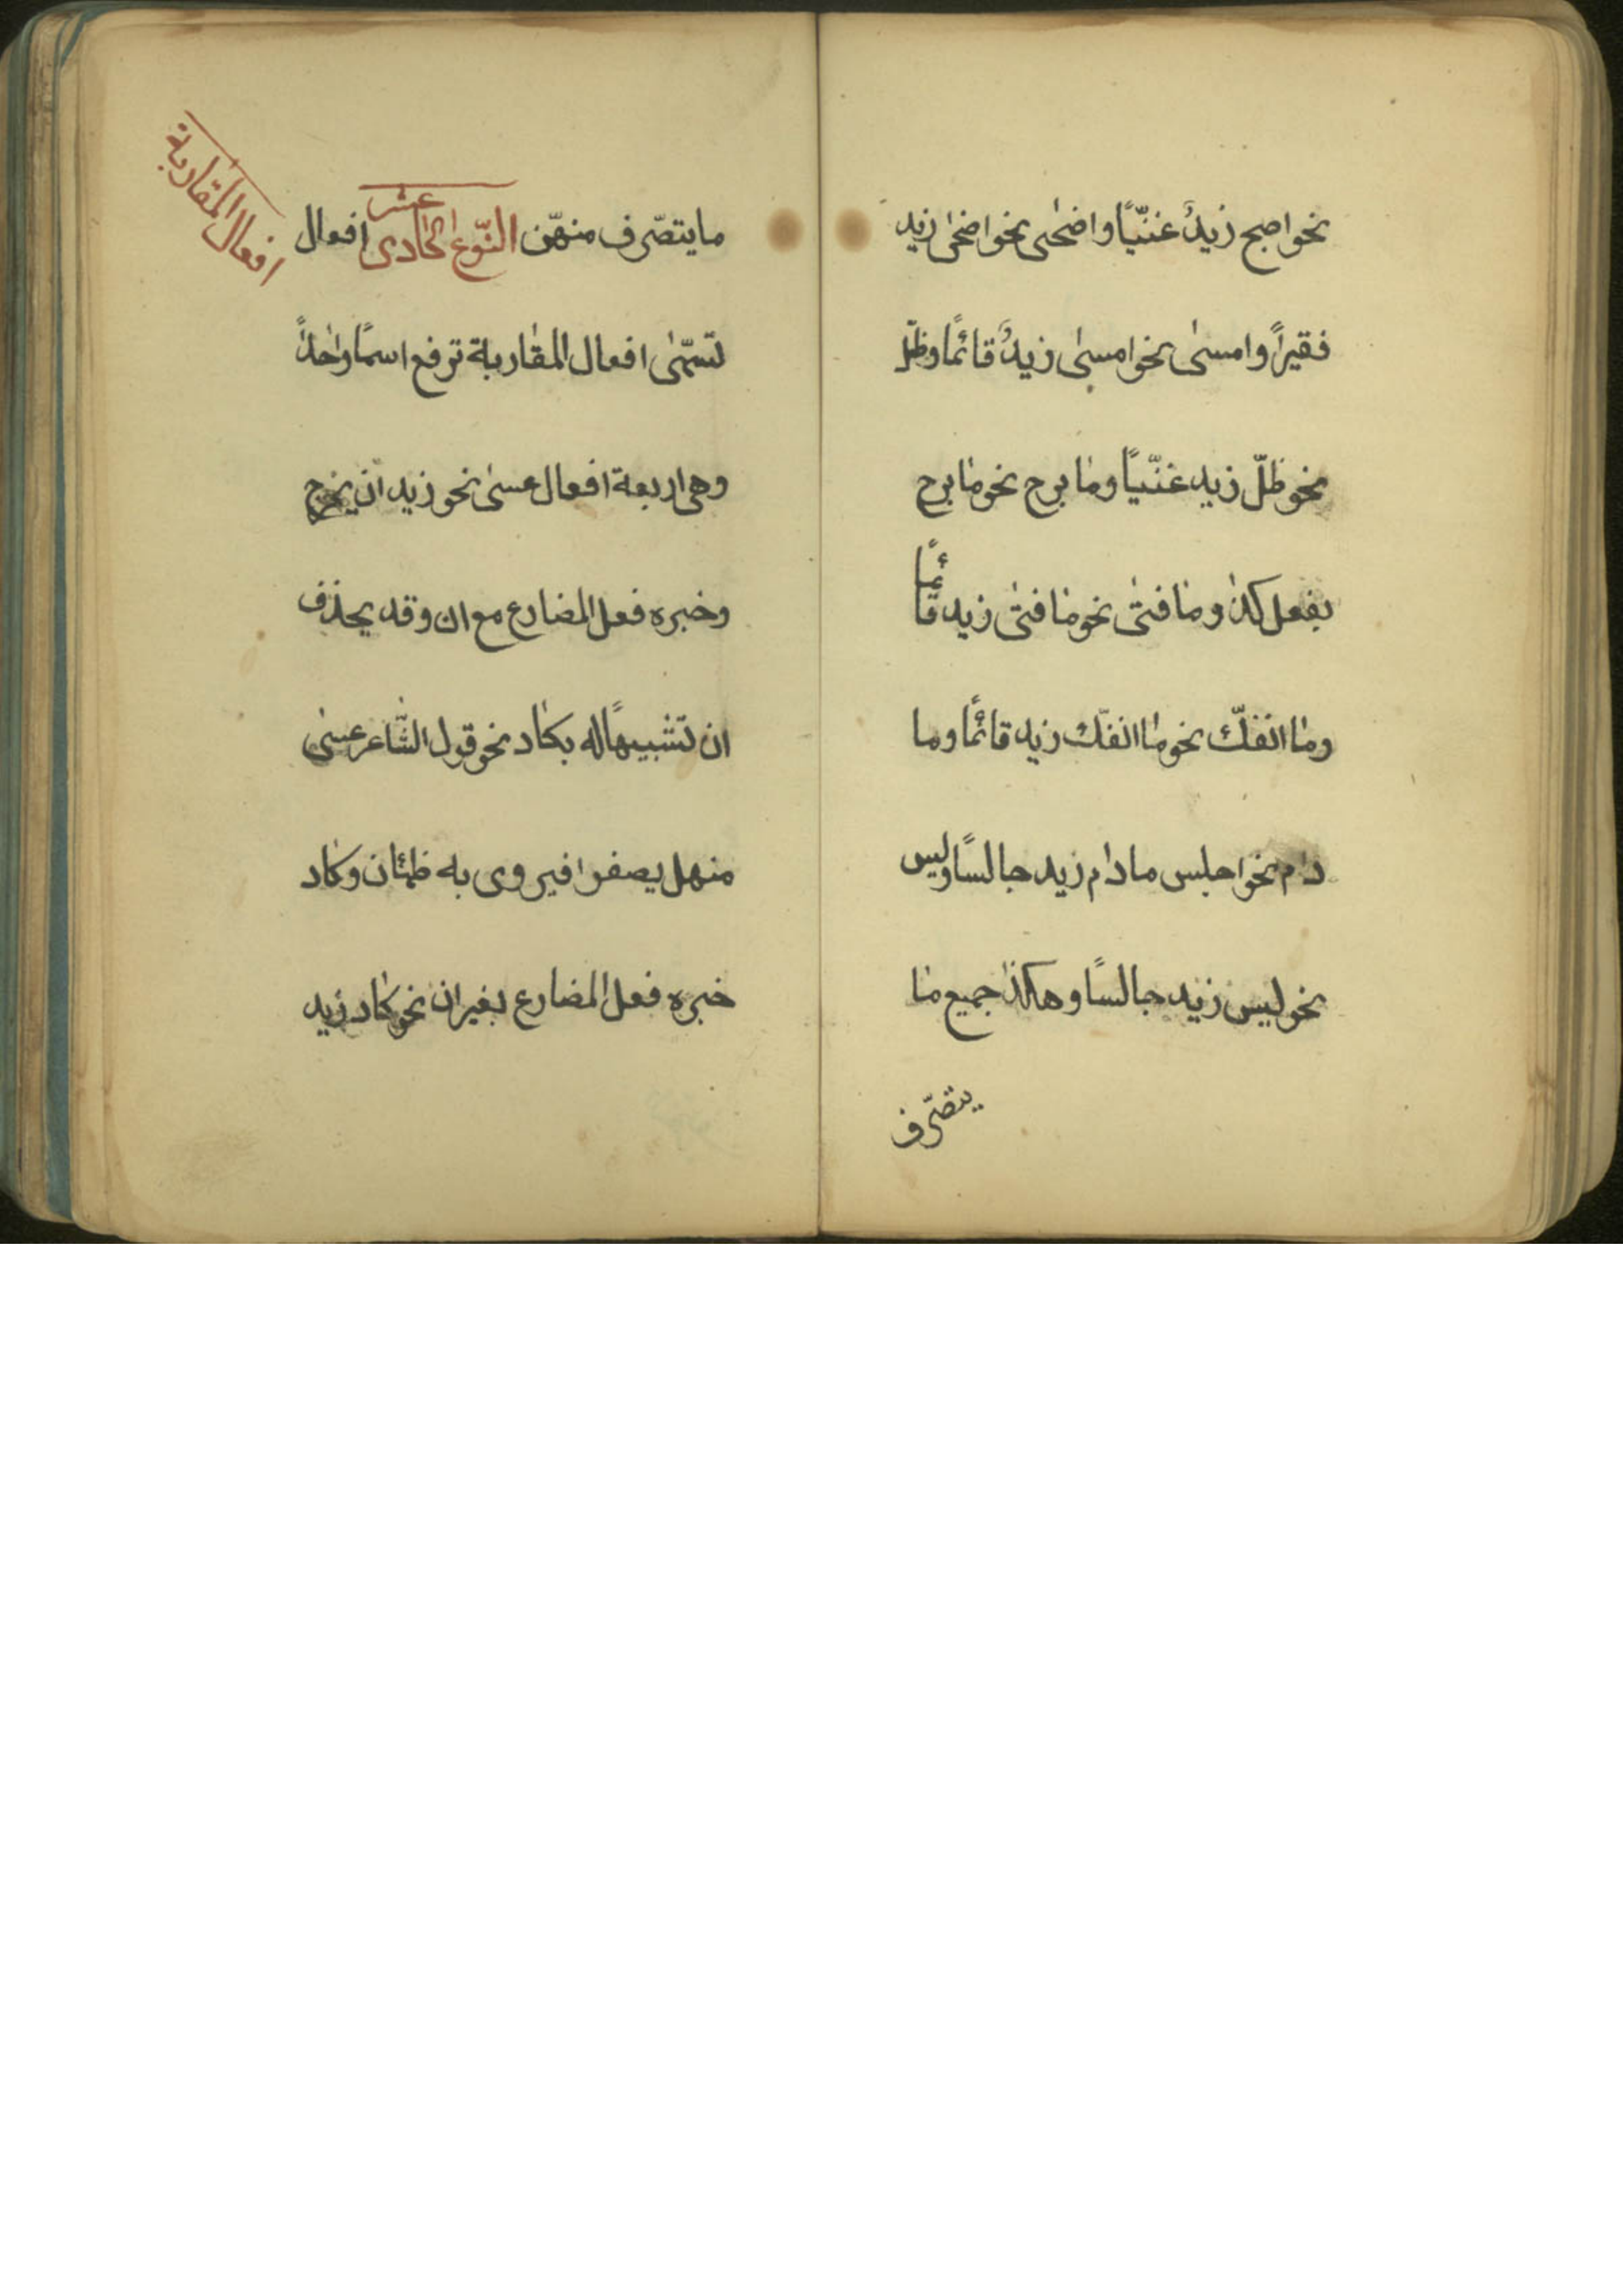 نحو اصبح زيدٌ غنيّاً واضحٰى نحو اضحٰى زيد
فقيراً وامسىٰ نحو امسىٰ زيدٌ قائمًا وظلّ
نحو ظلّ زيد غنيّاً ومٰا برح نحو مٰا برح
يفعل كذٰا ومٰا فتئ نحو مٰا فتئ زيد قائمًا
ومٰا انفكّ نحو مٰا انفكّ زيد قائمًا وما
دام نحو اجلس ما دٰام زيد جالسًا وليس
نحو ليس زيد جالسًا وهكذٰا جميع مٰا
يتصرّف
ما يتصرّف منهّن النّوع الحٰادى عشر افعال
افعال المقاربة
تسمّىٰ افعال المقٰاربة ترفع اسمًا وٰاحداً
وهى اربعة افعال عسىٰ نحو زيد ان يخرج
وخبره فعل المضٰارع مع ان وقد يحذف
ان تشبيهًا له بكٰاد نحو قول الشّاعر عسىٰ
منهل يصفر افيروى به ظمئان وكٰاد
خبره فعل المضارع بغير ان نحو كٰاد زيد